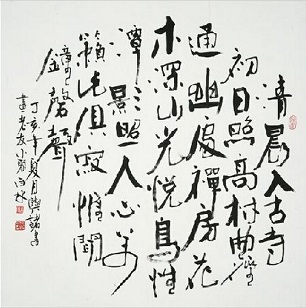 清晨入古寺
初日照高林曲徑
通幽處禪房花
木深山光悅鳥性
潭 照人心萬
籟此俱寂惟聞
鐘磬聲
丁亥年夏月與諸書
畫老友小聚